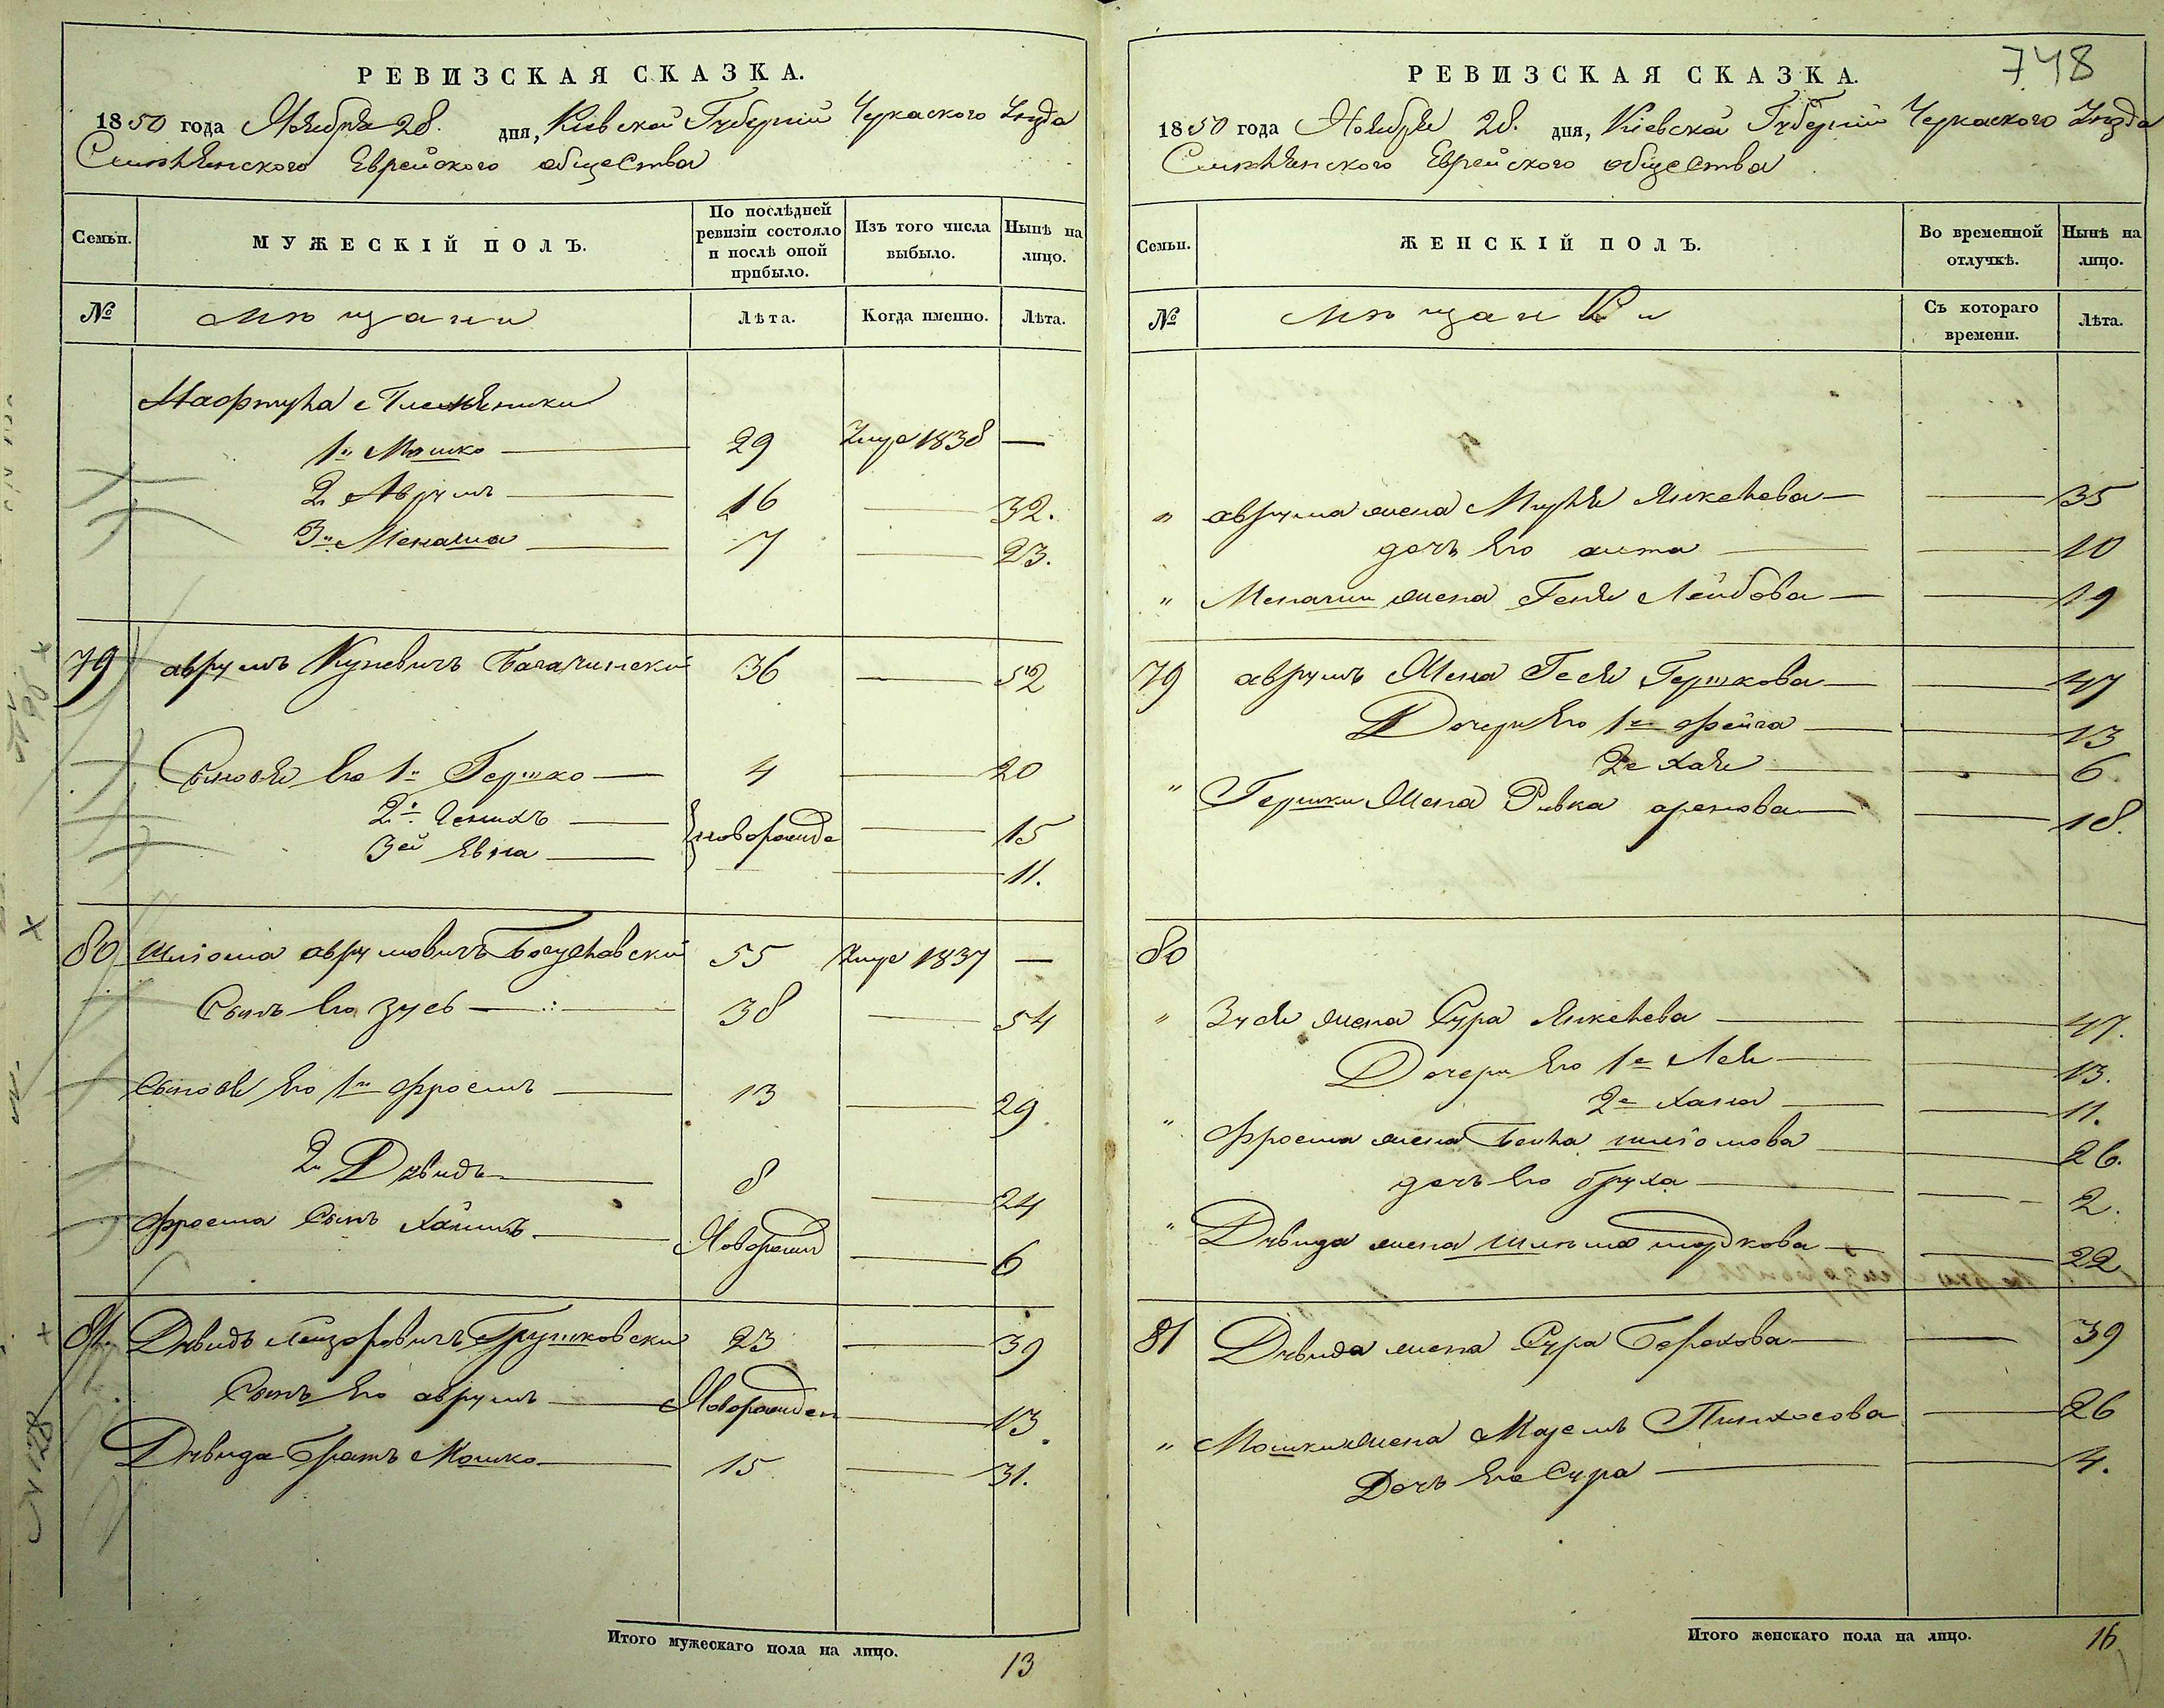 РЕВИЗСКАЯ СКАЗКА.
1850 года Ноября 28. дня, Кіевской Губерніи Черкаского Уѣзда
Смѣлянского Еврейского общества
Семьи.
МУЖЕСКІЙ ПОЛЪ.
По послѣдней ревизіи состояло и послѣ оной прибыло.
Изъ того числа выбыло.
Нынѣ на лицо.
№ мѣщани Лѣта. Когда именно. Лѣта.
племяники
1й Мошко 29 Умре 1838 —
2. Аврумъ 16 — 32.
3й Менаша 7 — 23.
79 аврумъ Куневичъ 36 — 52
Сыновя его 1й Гершко 4 — 20
2й новорожде — 15
3ей Евна — 11.
80 Шліома аврумовичъ Богуславский 55 Умре 1837 —
Сынъ его Зусь 38 — 54
Сыновя его 1й Фроемъ 13 — 29.
2й Дувидъ 8 — 24
Фроема Сынъ Хаимъ Новорожд — 6
81. Дувидъ Лейзоровичъ Грушковски 23 — 39
Сынъ его аврумъ Новорожден — 13.
Дувида братъ Мошко 15 — 31.
Итого мужескаго пола на лицо. 13
748
РЕВИЗСКАЯ СКАЗКА.
1850 года Ноября 28. дня, Кіевской Губерніи Черкаского Уѣзда
Смѣлянского Еврейского общества
Семьи.
ЖЕНСКІЙ ПОЛЪ.
Во временной отлучкѣ.
Нынѣ на лицо.
№ мѣщанки Съ котораго времени. Лѣта.
" аврума жена Янкелева — 35
дочъ его — 10
" Менаши жена Геня Лейбова — 19
79 аврумъ Жена Геся Гершкова — 47
Дочери его 1я Фейга — 13
2е Хая — 6.
" Гершки Жена Ривка аронова — 18.
80
" Зуся жена Сура Янкелева — 47.
Дочери его 1е Лея — 13.
2е Хана — 11.
" Фроема жена Бейла шліомова — 26.
дочъ его Бруха — 2.
" Дувида жена — 22
81 Дувида жена Сура Берохова — 39
" Мошки жена Пинхосова — 26
Дочъ его Сура — 4.
Итого женскаго пола на лицо. 16